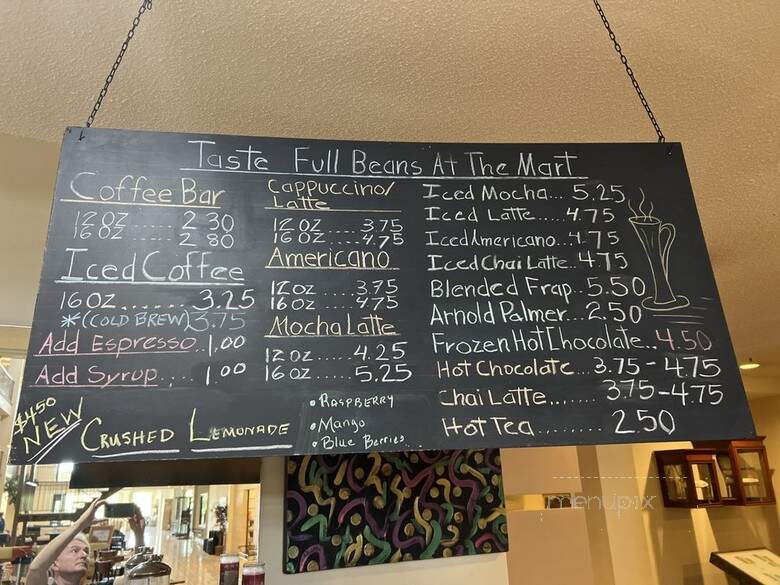 Taste Full Beans At The Mart
Coffee Bar
12 OZ ..... 2 30
16 OZ ..... 2 80
Iced Coffee
16 OZ ........ 3.25
*(COLD BREW) 3.75
Add Espresso..1,00
Add Syrup.... 1 00
$4.50
NEW
CRUSHED LEMONADE
Cappuccino/
Latte
12 OZ .... 3.75
16 OZ .... 4.75
Americano
12 OZ .... 3.75
16 OZ .... 4.75
Mocha Latte
12 OZ ..... 4.25
16 OZ ..... 5.25
• RASPBERRY
• Mango
• Blue Berries
Iced Mocha... 5.25
Iced Latte.... 4.75
Iced Americano..4.75
Iced Chai Latte..4.75
Blended Frap..5.50
Arnold Palmer...2.50
Frozen Hot Chocolate..4.50
Hot Chocolate...3.75-4.75
Chai Latte....... 3.75-4.75
Hot Tea......... 2.50
menupix